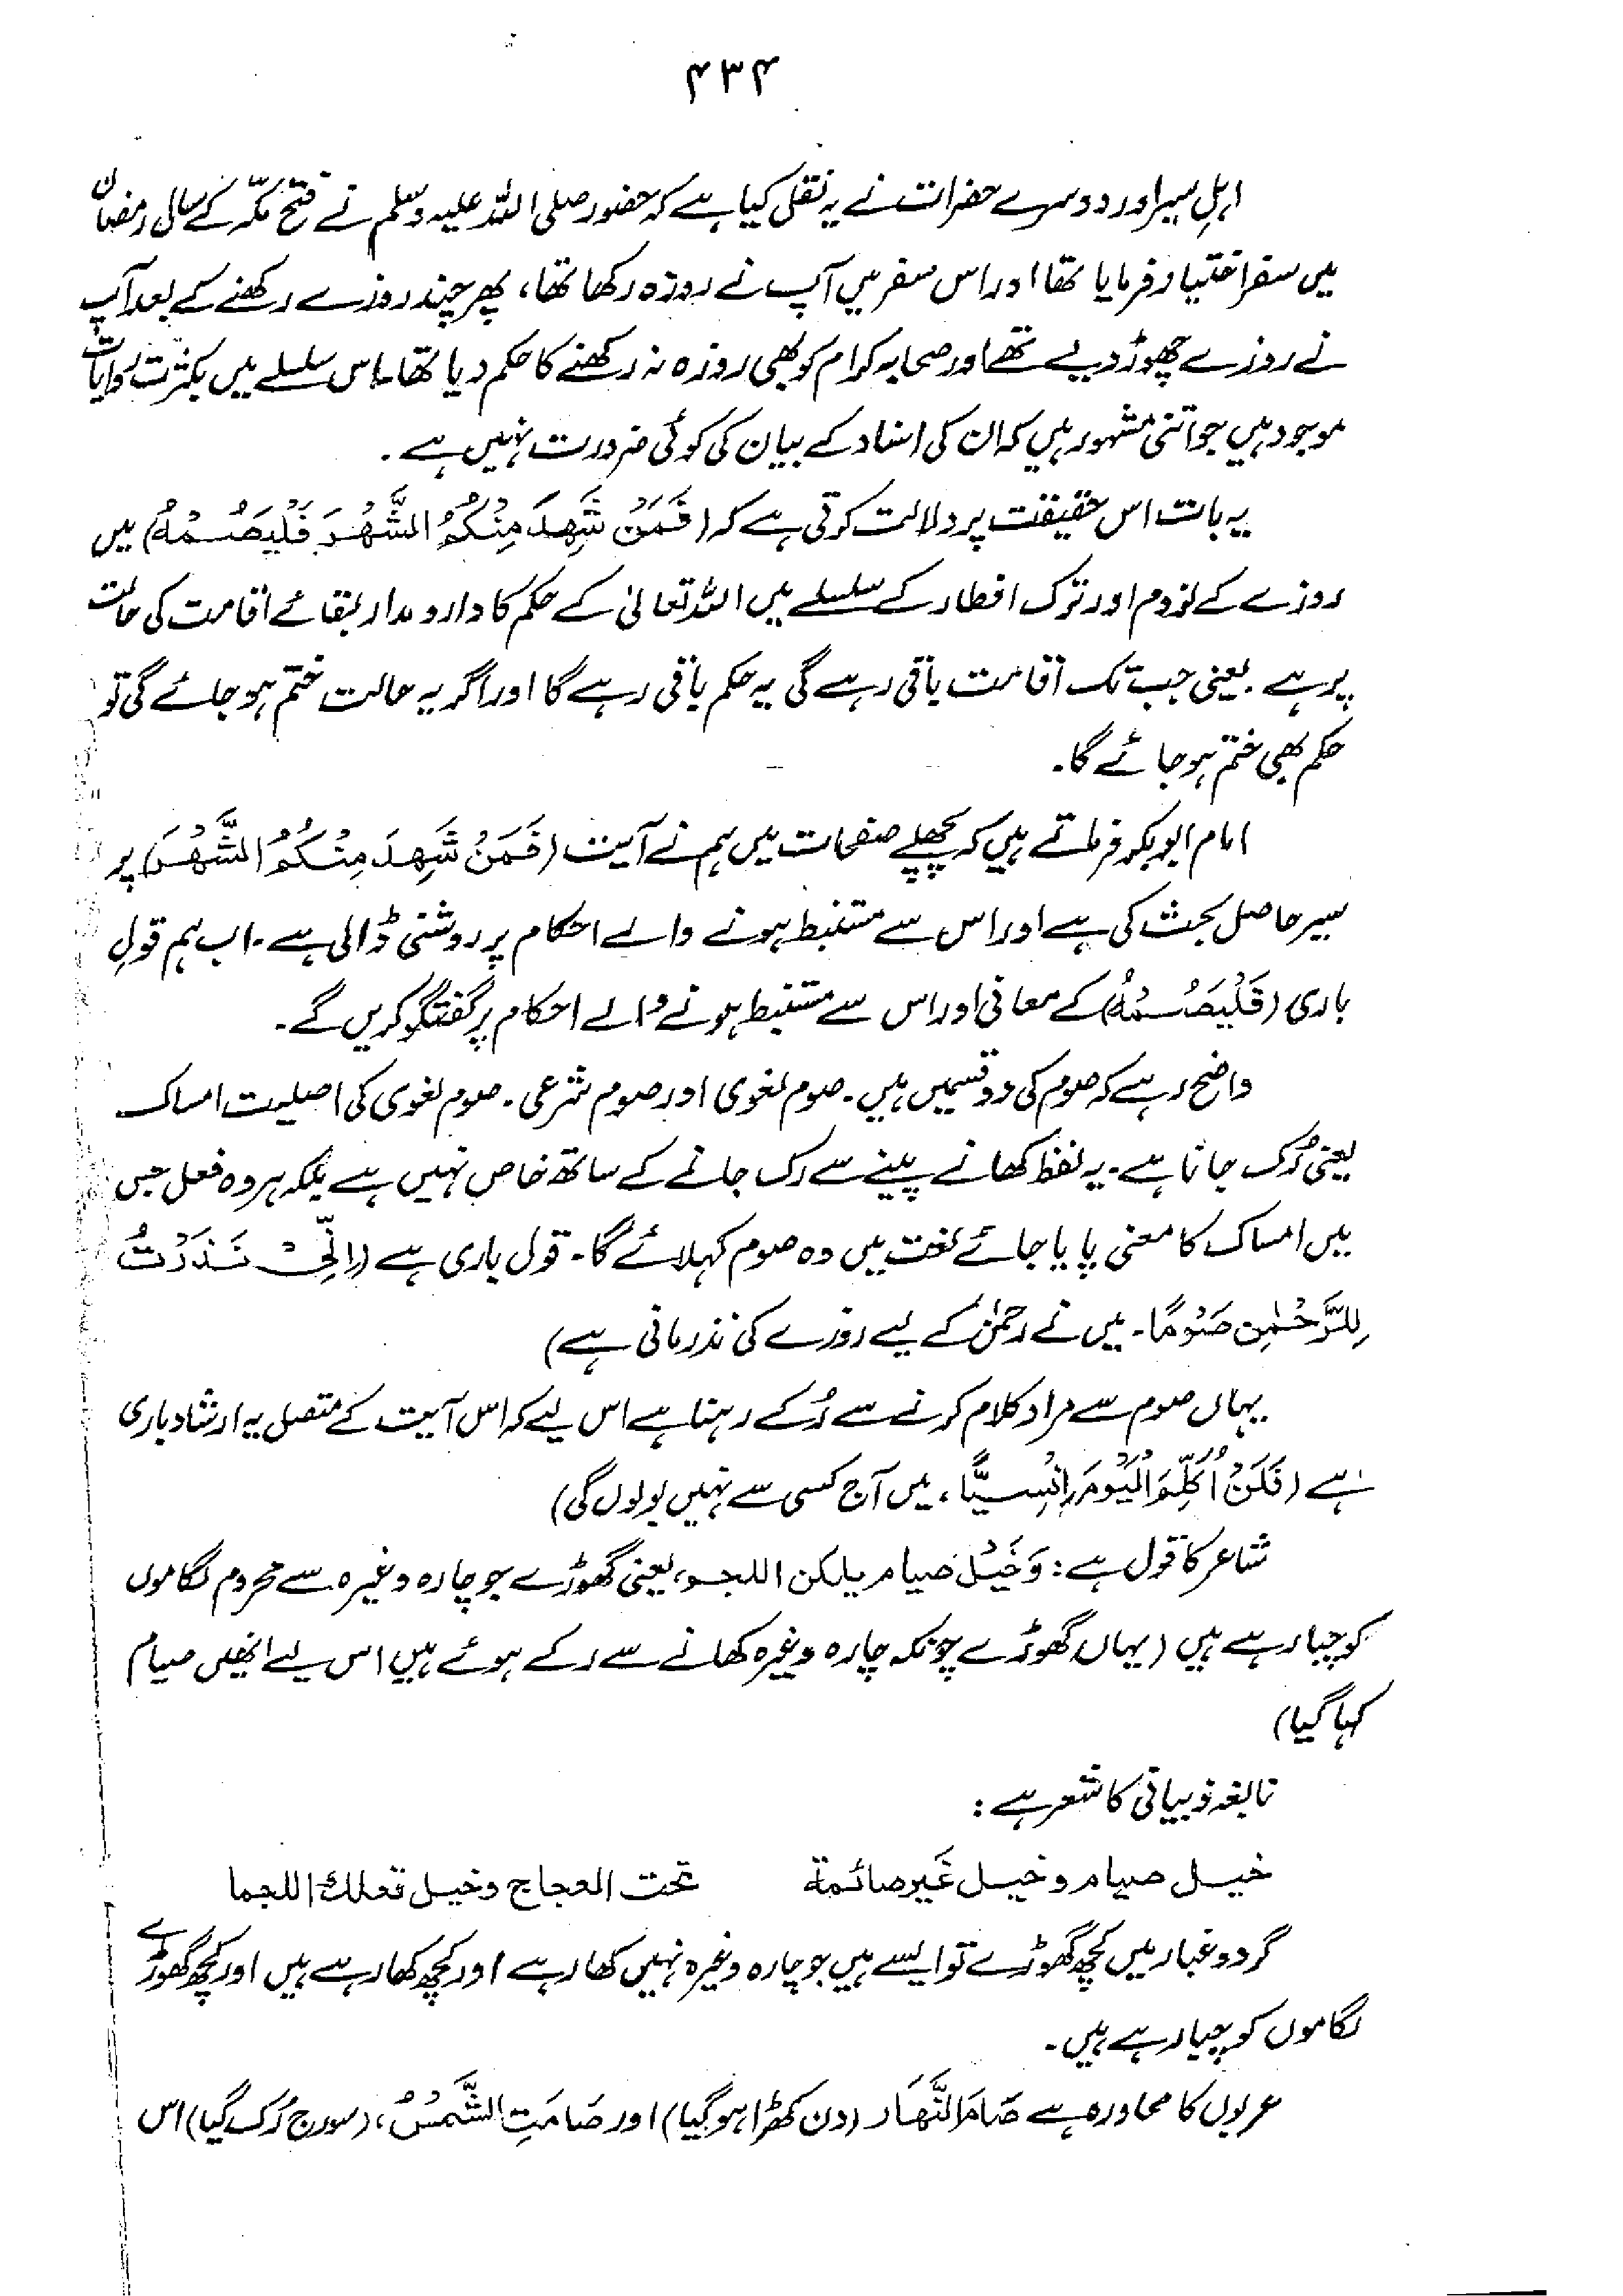 ۴۳۴
اہلِ سیر اور دوسرے حضرات نے یہ نقل کیا ہے کہ حضور صلی اللہ علیہ وسلم نے فتح مکّہ کے سال رمضان
میں سفر اختیار فرمایا تھا اور اس سفر میں آپ نے روزہ رکھا تھا، پھر چند روزے رکھنے کے بعد آپ
نے روزے چھوڑ دیے تھے اور صحابہ کرام کو بھی روزہ نہ رکھنے کا حکم دیا تھا۔ اس سلسلے میں بکثرت روایات
موجود ہیں جو اتنی مشہور ہیں کہ ان کی اسناد کے بیان کی کوئی ضرورت نہیں ہے۔
یہ بات اس حقیقت پر دلالت کرتی ہے کہ (فَمَنْ شَهِدَ مِنْكُمُ الشَّهْرَ فَلْيَصُمْهُ) میں
روزے کے لزوم اور ترک افطار کے سلسلے میں اللہ تعالیٰ کے حکم کا دارومدار بقائے اقامت کی حالت
پر ہے۔ یعنی جب تک اقامت باقی رہے گی یہ حکم باقی رہے گا اور اگر یہ حالت ختم ہو جائے گی تو
حکم بھی ختم ہو جائے گا۔
امام ابوبکر فرماتے ہیں کہ پچھلے صفحات میں ہم نے آیت (فَمَنْ شَهِدَ مِنْكُمُ الشَّهْرَ) پر
سیر حاصل بحث کی ہے اور اس سے مستنبط ہونے والے احکام پر روشنی ڈالی ہے۔ اب ہم قولِ
باری (فَلْيَصُمْهُ) کے معانی اور اس سے مستنبط ہونے والے احکام پر گفتگو کریں گے۔
واضح رہے کہ صوم کی دو قسمیں ہیں۔ صوم لغوی اور صوم شرعی۔ صوم لغوی کی اصلیت امساک
یعنی رُک جانا ہے۔ یہ لفظ کھانے پینے سے رک جانے کے ساتھ خاص نہیں ہے بلکہ ہر وہ فعل جس
میں امساک کا معنی پایا جائے لغت میں وہ صوم کہلائے گا۔ قول باری ہے (اِنِّیْ نَذَرْتُ
لِلرَّحْمٰنِ صَوْمًا۔ میں نے رحمٰن کے لیے روزے کی نذر مانی ہے)
یہاں صوم سے مراد کلام کرنے سے رُکے رہنا ہے اس لیے کہ اس آیت کے متصل یہ ارشاد باری
ہے (فَلَنْ اُكَلِّمَ الْيَوْمَ اِنْسِيًّا، میں آج کسی سے نہیں بولوں گی)
شاعر کا قول ہے: وَخَيْل صيام يلكن اللجم، یعنی گھوڑے جو چارہ وغیرہ سے محروم لگاموں
کو چبا رہے ہیں (یہاں گھوڑے چونکہ چارہ وغیرہ کھانے سے رکے ہوئے ہیں اس لیے انھیں صیام
کہا گیا)
نابغہ ذبیانی کا شعر ہے:
خيل صيام وخيل غَير صائمة تحت العجاج وخيل تعلك اللجما
گرد و غبار میں کچھ گھوڑے تو ایسے ہیں جو چارہ وغیرہ نہیں کھا رہے اور کچھ کھا رہے ہیں اور کچھ گھوڑے
لگاموں کو چبا رہے ہیں۔
عربوں کا محاورہ ہے صَامَ النَّهَار (دن کھڑا ہو گیا) اور صَامَتِ الشَّمْسُ، (سورج رُک گیا) اس